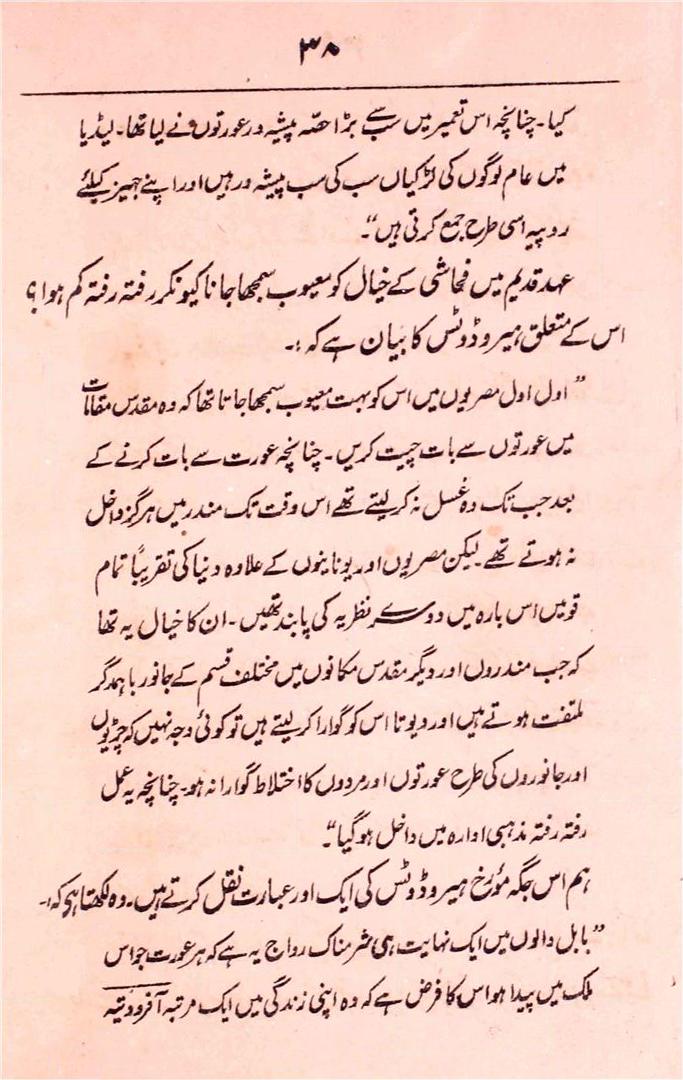 ۳۸
کیا۔ چنانچہ اس تعمیر میں سب سے بڑا حصّہ پیشہ ور عورتوں نے لیا تھا۔ لیڈیا
میں عام لوگوں کی لڑکیاں سب کی سب پیشہ ور ہیں اور اپنے جہیز کیلئے
روپیہ اسی طرح جمع کرتی ہیں"۔
عہد قدیم میں فحاشی کے خیال کو معیوب سمجھا جانا کیونکر رفتہ رفتہ کم ہوا؟
اس کے متعلق ہیروڈوٹس کا بیان ہے کہ :۔
"اول اول مصریوں میں اس کو بہت معیوب سمجھا جاتا تھا کہ وہ مقدس مقامات
میں عورتوں سے بات چیت کریں۔ چنانچہ عورت سے بات کرنے کے
بعد جب تک وہ غسل نہ کر لیتے تھے اس وقت تک مندر میں ہرگز داخل
نہ ہوتے تھے۔ لیکن مصریوں اور یونانیوں کے علاوہ دنیا کی تقریباً تمام
قومیں اس بارہ میں دوسرے نظریہ کی پابند تھیں۔ ان کا خیال یہ تھا
کہ جب مندروں اور دیگر مقدس مکانوں میں مختلف قسم کے جانور باہمدگر
ملتفت ہوتے ہیں اور دیوتا اس کو گوارا کر لیتے ہیں تو کوئی وجہ نہیں کہ چڑیوں
اور جانوروں کی طرح عورتوں اور مردوں کا اختلاط گوارا نہ ہو۔ چنانچہ یہ عمل
رفتہ رفتہ مذہبی ادارہ میں داخل ہو گیا"۔
ہم اس جگہ مؤرخ ہیروڈوٹس کی ایک اور عبارت نقل کرتے ہیں۔ وہ لکھتا ہے کہ :۔
"بابل والوں میں ایک نہایت ہی شرمناک رواج یہ ہے کہ ہر عورت جو اس
ملک میں پیدا ہو اس کا فرض ہے کہ وہ اپنی زندگی میں ایک مرتبہ آفرودتیہ